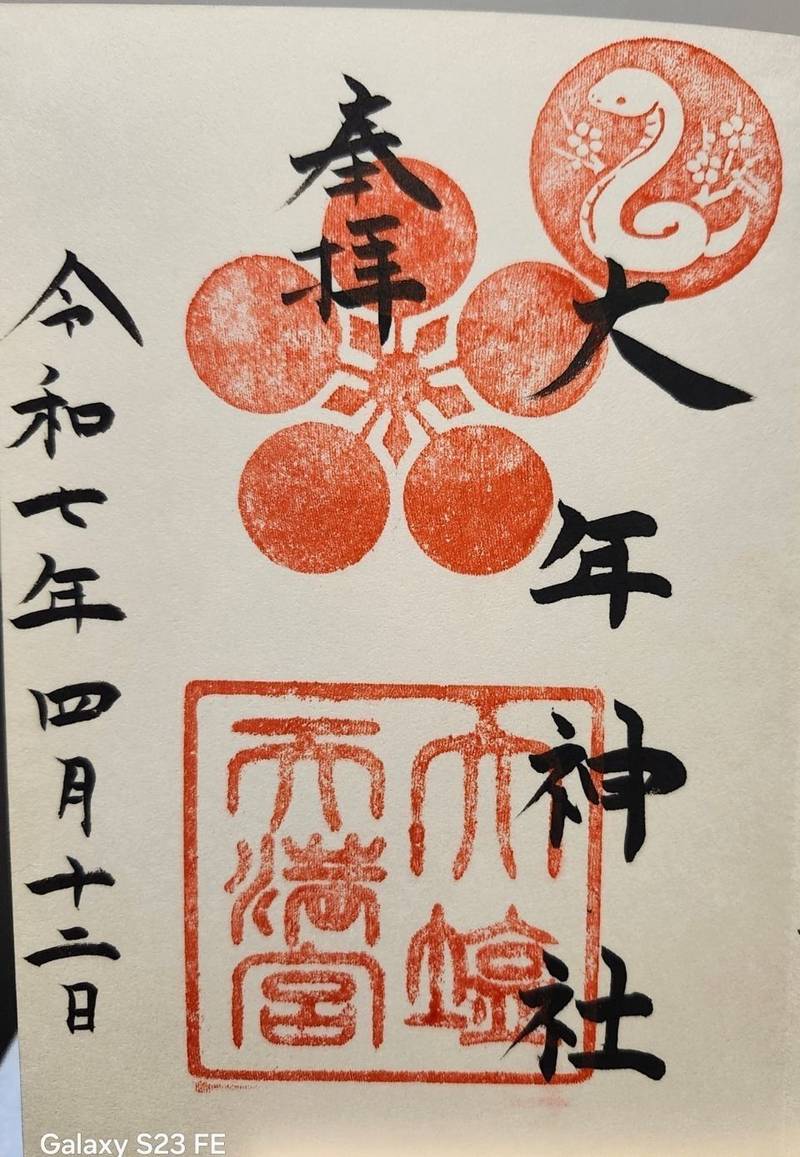 大年神社
奉拝
大塩
天満宮
令和七年四月十二日
Galaxy S23 FE